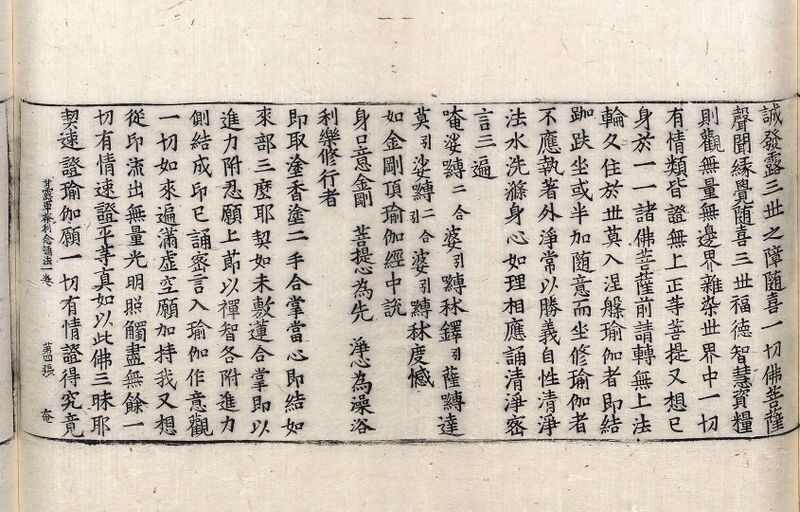 誠發露三世之障随喜一切佛菩薩
聲聞縁覺随喜三世福德智慧資糧
則觀無量無邊界雜染世界中一切
有情類皆證無上正等菩提又想已
身於一一諸佛菩薩前請轉無上法
輪久住於世莫入涅槃瑜伽者即結
跏趺坐或半加随意而坐修瑜伽者
不應執著外淨常以勝義自性清淨
法水洗滌身心如理相應誦清淨密
言三遍
唵娑縛二合婆引縛秫鐸引薩縛達
莫引娑縛二合引婆引縛秫度憾
如金剛頂瑜伽經中說
身口意金剛 菩提心為先 淨心為澡浴
利樂修行者
即取塗香塗二手合掌當心即結如
來部三麽耶契如未敷蓮合掌即以
進力附忍願上莭以禪智各附進力
側結成印已誦密言入瑜伽作意觀
一切如來遍滿虛空願加持我又想
從印流出無量光明照觸盡無餘一
切有情速證平等真如以此佛三昧耶
甘露軍荼利念誦法一卷 第四張 奄
契速證瑜伽願一切有情證得究竟